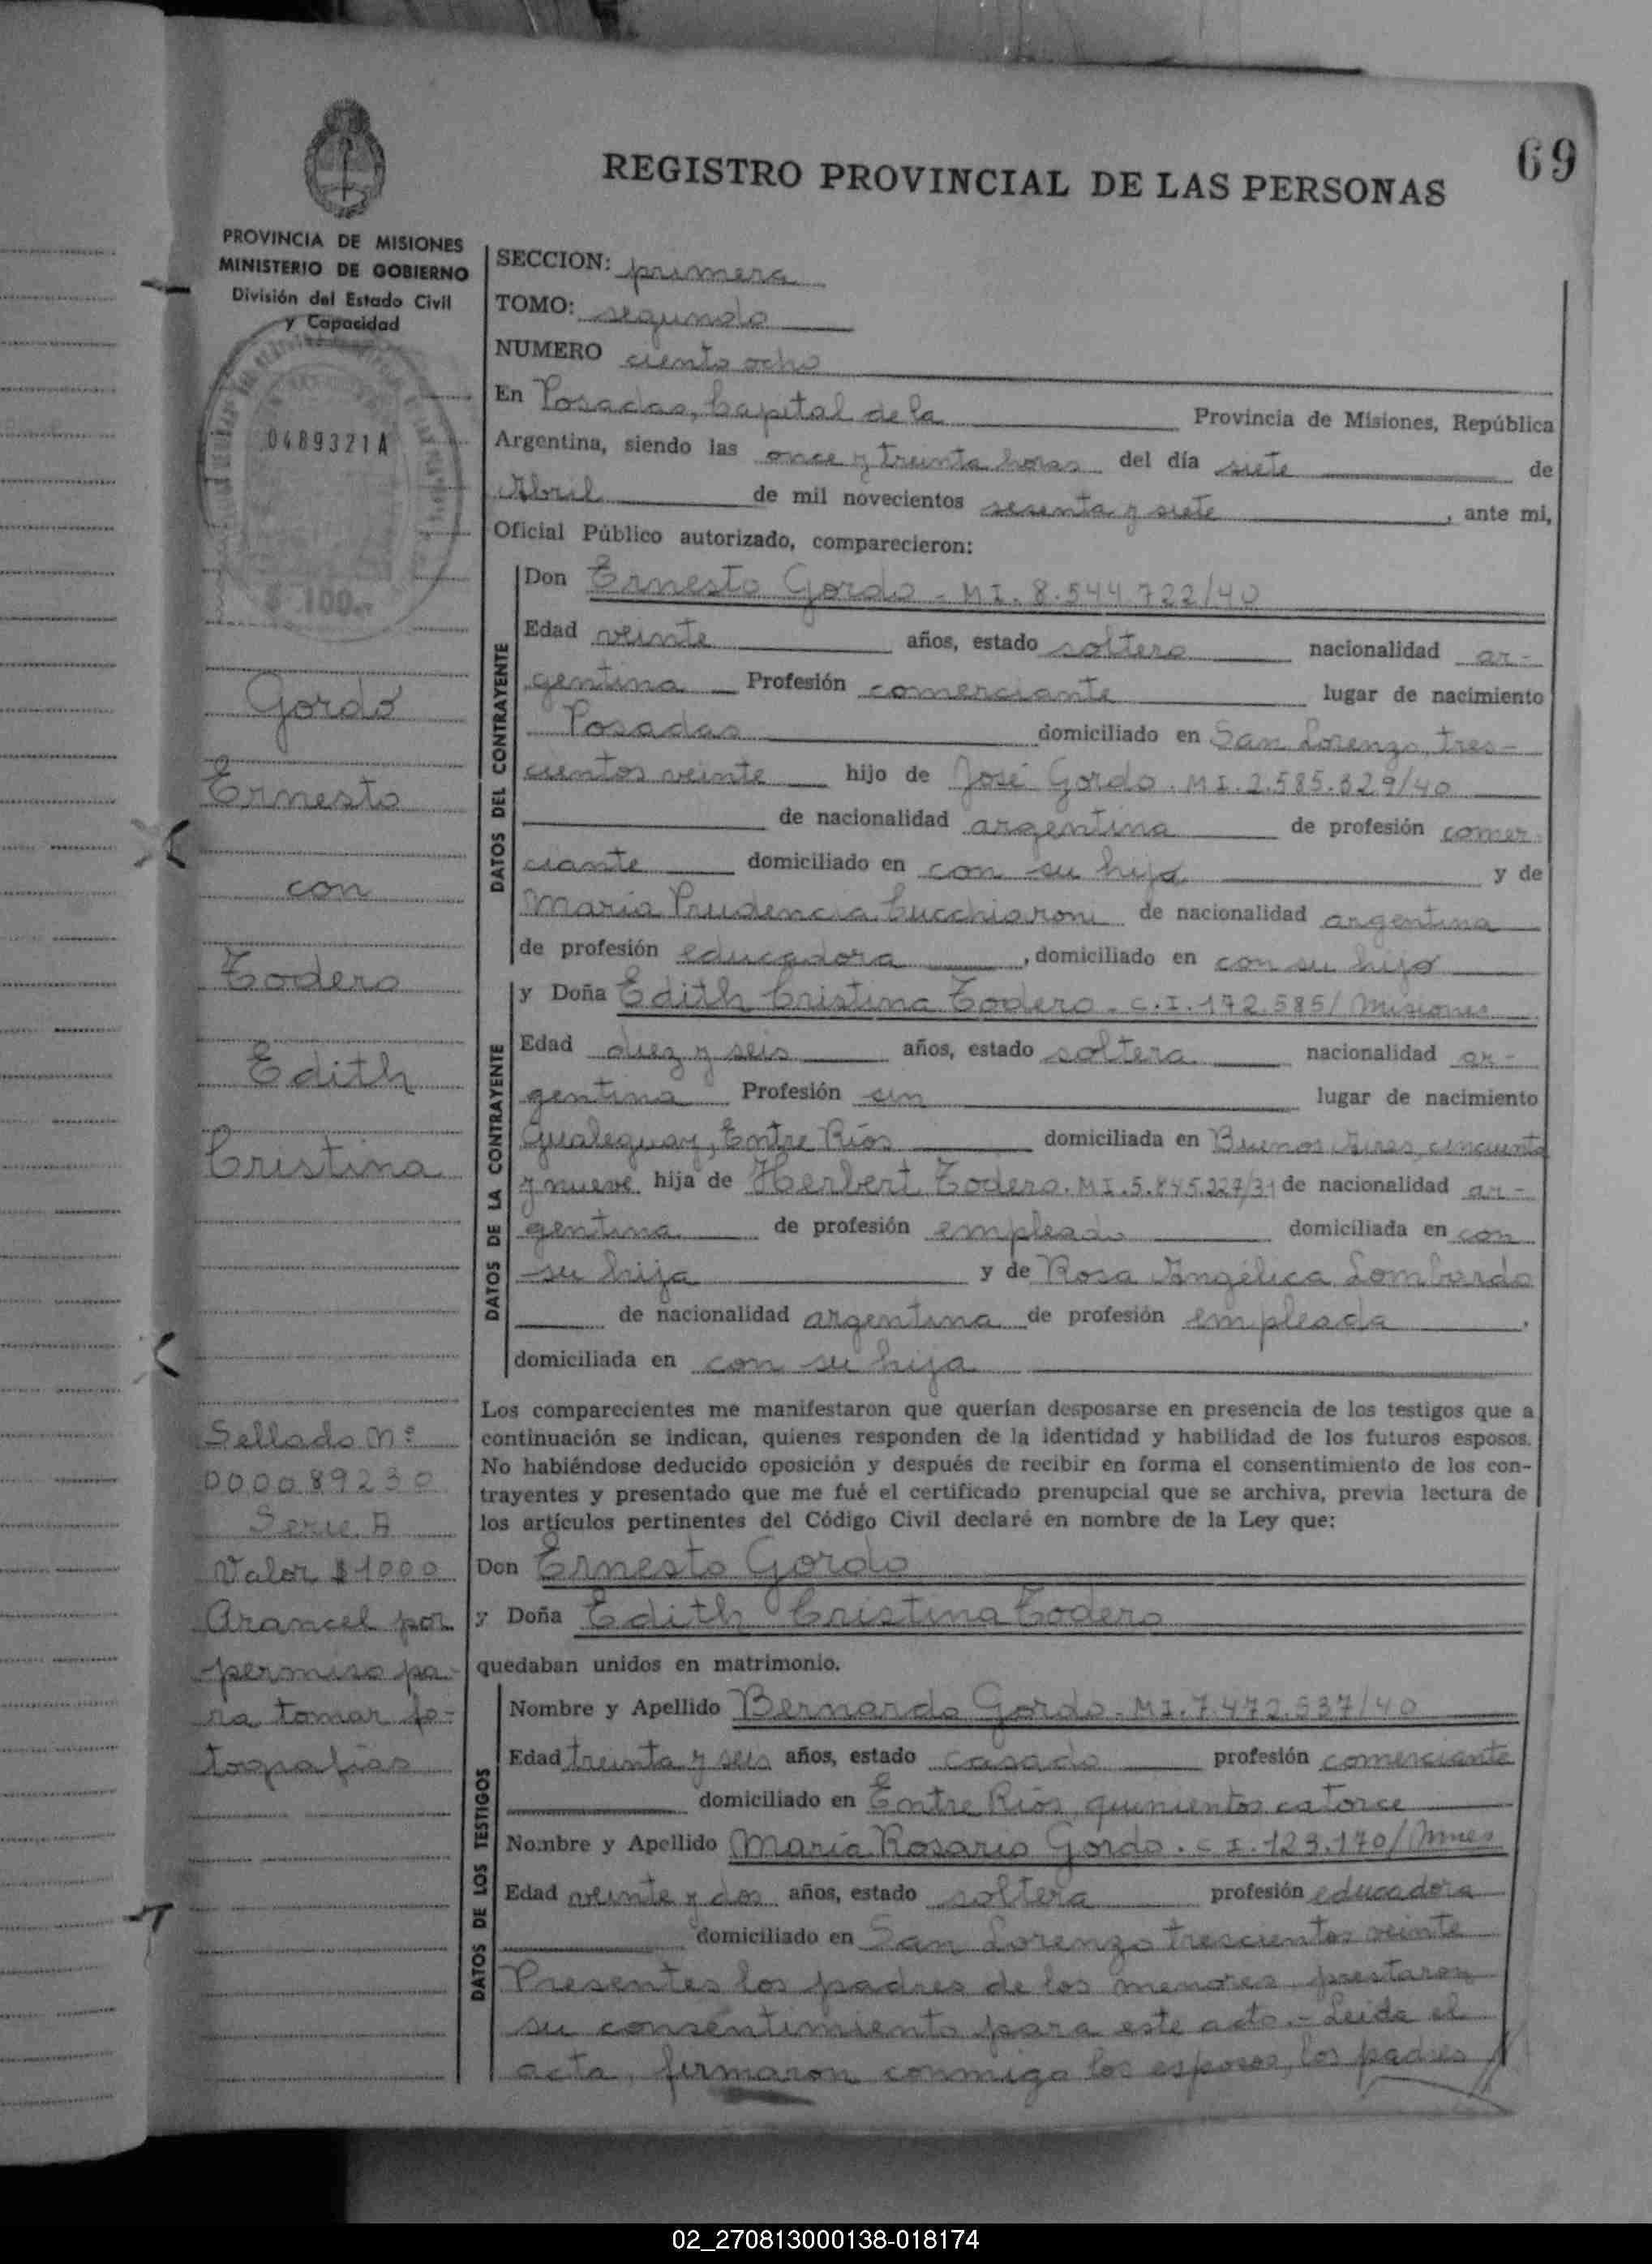 69
REGISTRO PROVINCIAL DE LAS PERSONAS
PROVINCIA DE MISIONES
MINISTERIO DE GOBIERNO
División del Estado Civil
y Capacidad
0489321A
$ 100.-
Gordo
Ernesto
con
Todero
Edith
Cristina
Sellado Nº
000089230
Serie A
Valor $1000
Arancel por
permiso pa-
ra tomar fo-
tografías
SECCION: primera
TOMO: segundo
NUMERO ciento ocho
En Posadas, Capital de la Provincia de Misiones, República
Argentina, siendo las once y treinta horas del día siete de
Abril de mil novecientos sesenta y siete, ante mi,
Oficial Público autorizado, comparecieron:
DATOS DEL CONTRAYENTE
Don Ernesto Gordo - MI. 8.544.722/40
Edad veinte años, estado soltero nacionalidad ar-
gentina Profesión comerciante lugar de nacimiento
Posadas domiciliado en San Lorenzo, tres-
cientos veinte hijo de José Gordo. MI. 2.585.329/40
de nacionalidad argentina de profesión comer
ciante domiciliado en con su hijo y de
María Prudencia Cucchiaroni de nacionalidad argentina
de profesión educadora, domiciliado en con su hijo
DATOS DE LA CONTRAYENTE
y Doña Edith Cristina Todero. C.I. 172.585/Misiones
Edad diez y seis años, estado soltera nacionalidad ar-
gentina Profesión sin lugar de nacimiento
Gualeguay, Entre Ríos domiciliada en Buenos Aires, cincuenta
y nueve hija de Herbert Todero. MI. 5.845.227/31 de nacionalidad ar-
gentina de profesión empleado domiciliada en con
su hija y de Rosa Angélica Lombardo
de nacionalidad argentina de profesión empleada,
domiciliada en con su hija
Los comparecientes me manifestaron que querían desposarse en presencia de los testigos que a
continuación se indican, quienes responden de la identidad y habilidad de los futuros esposos.
No habiéndose deducido oposición y después de recibir en forma el consentimiento de los con-
trayentes y presentado que me fué el certificado prenupcial que se archiva, previa lectura de
los artículos pertinentes del Código Civil declaré en nombre de la Ley que:
Don Ernesto Gordo
y Doña Edith Cristina Todero
quedaban unidos en matrimonio.
DATOS DE LOS TESTIGOS
Nombre y Apellido Bernardo Gordo. MI. 7.472.537/40
Edad treinta y seis años, estado casado profesión comerciante
domiciliado en Entre Ríos, quinientos catorce
Nombre y Apellido María Rosario Gordo. C I. 123.170/Mnes
Edad veinte y dos años, estado soltera profesión educadora
domiciliado en San Lorenzo trescientos veinte
Presentes los padres de los menores prestaron
su consentimiento para este acto.- Leída el
acta, firmaron conmigo los esposos, los padres
02_270813000138-018174